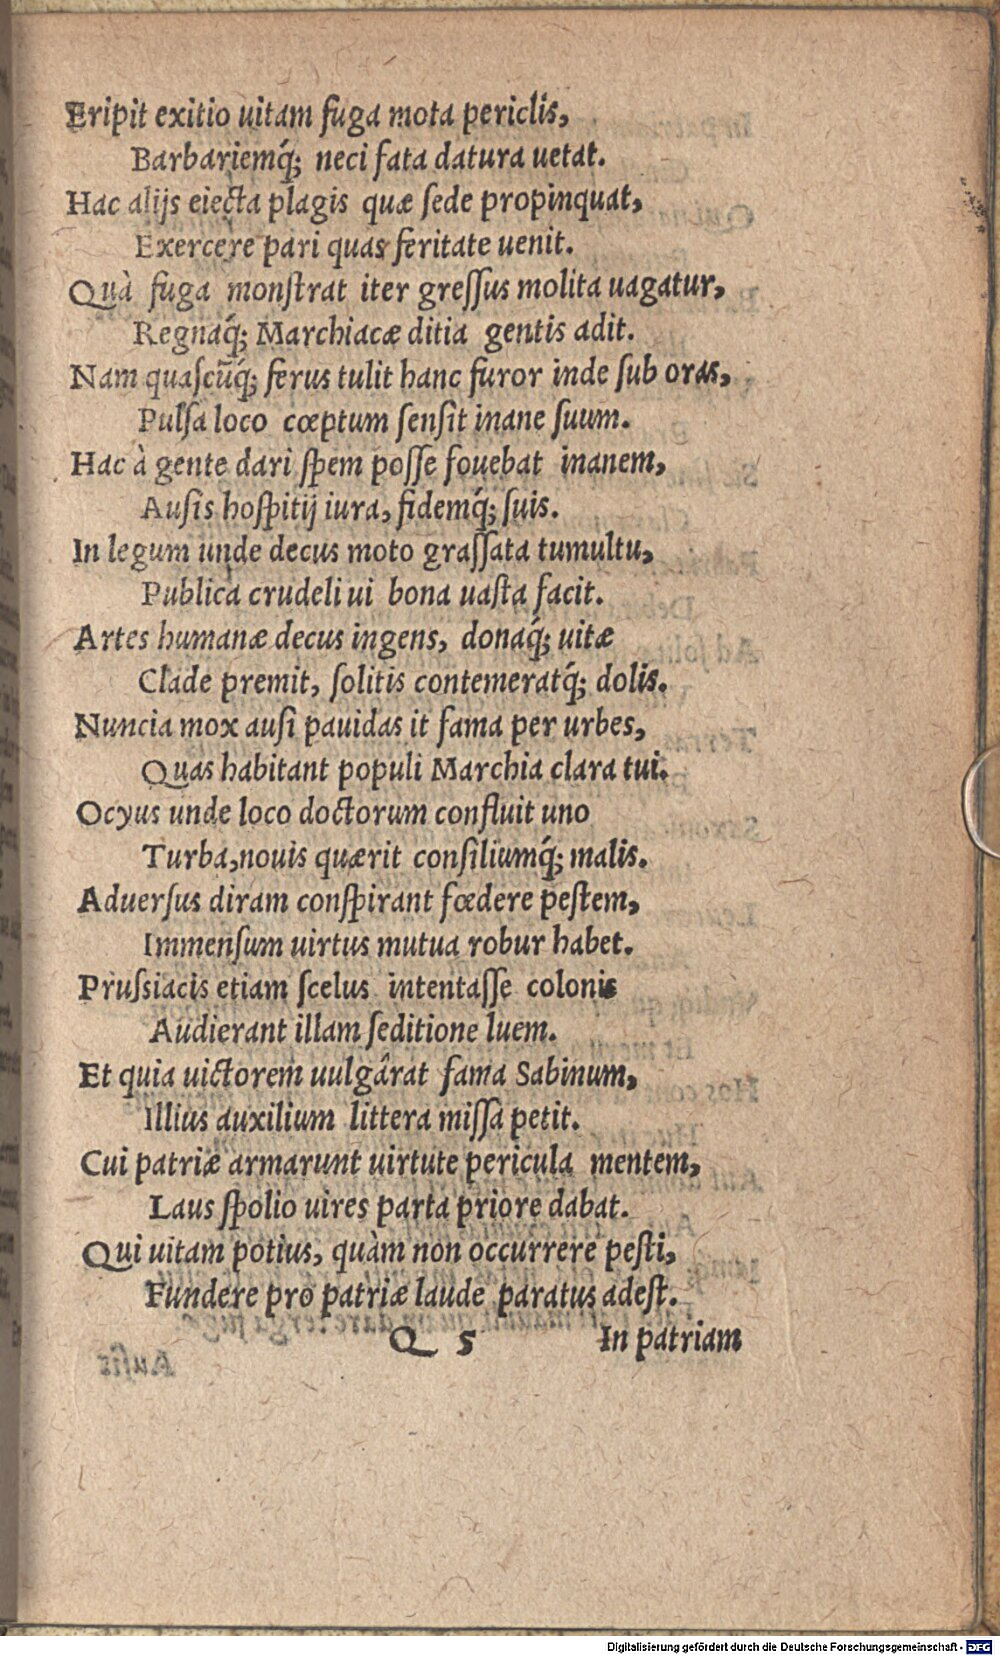 Eripit exitio uitam fuga mota periclis,
Barbariemq́; neci fata datura uetat.
Hac alijs eiecta plagis quæ sede propinquat,
Exercere pari quas feritate uenit.
Quà fuga monſtrat iter greſſus molita uagatur,
Regnaq́; Marchiacæ ditia gentis adit.
Nam quaſcũq́; ferus tulit hanc furor inde ſub oras,
Pulſa loco cœptum ſenſit inane ſuum.
Hac à gente dari ſpem poſſe fouebat inanem,
Auſis hoſpitij iura, fidemq́; ſuis.
In legum unde decus moto graſſata tumultu,
Publica crudeli ui bona uaſta facit.
Artes humanæ decus ingens, donaq́; uitæ
Clade premit, ſolitis contemeratq́; dolis.
Nuncia mox auſi pauidas it fama per urbes,
Quas habitant populi Marchia clara tui.
Ocyus unde loco doctorum confluit uno
Turba, nouis quærit conſiliumq́; malis.
Aduerſus diram conſpirant fœdere peſtem,
Immenſum uirtus mutua robur habet.
Prusſiacis etiam ſcelus intentaſſe colonis
Audierant illam ſeditione luem.
Et quia uictorem uulgârat fama Sabinum,
Illius auxilium littera miſſa petit.
Cui patriæ armarunt uirtute pericula mentem,
Laus ſpolio uires parta priore dabat.
Qui uitam potius, quàm non occurrere peſti,
Fundere pro patriæ laude paratus adeſt.
Q 5 In patriam
Digitalisierung gefördert durch die Deutsche Forschungsgemeinschaft - DFG